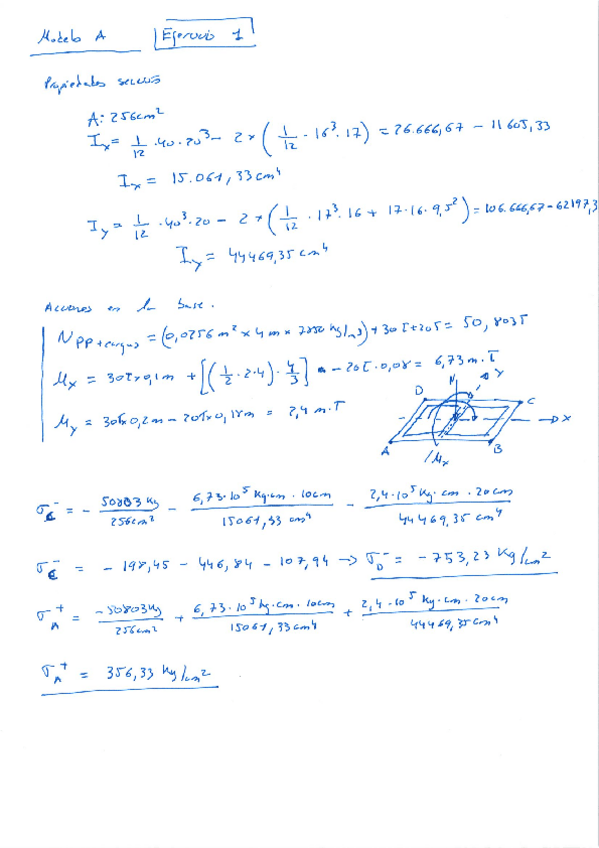 Modelo A Ejercicio 1
Propiedades sección
A: 256cm²
Ix = 1/12 · 40 · 20³ - 2 × (1/12 · 16³ · 17) = 26.666,67 - 11605,33
Ix = 15.061,33 cm⁴
Iy = 1/12 · 40³ · 20 - 2 × (1/12 · 17³ · 16 + 17 · 16 · 9,5²) = 106.666,67 - 62197,3
Iy = 44469,35 cm⁴
Acciones en la base.
N PP+cargas = (0,0256 m² × 4m × 7850 kg/m3) + 30T + 20T = 50,803T
Mx = 30T×0,1m + [(1/2 · 2 · 4) · 4/3] - 20T · 0,08 = 6,73 m·T
My = 30T×0,2m - 20T×0,18m = 2,4 m·T
N Y
D C
X
A B
Mx
σC⁻ = - 50803 Kg / 256cm² - 6,73·10⁵ Kg·cm · 10cm / 15061,33 cm⁴ - 2,4·10⁵ Kg·cm · 20cm / 44469,35 cm⁴
σC⁻ = - 198,45 - 446,84 - 107,94 → σD⁻ = - 753,23 Kg/cm2
σA⁺ = -50803Kg / 256cm² + 6,73·10⁵ kg·cm · 10cm / 15061,33cm⁴ + 2,4·10⁵ Kg·cm · 20cm / 44469,35cm⁴
σA⁺ = 356,33 Kg/cm2